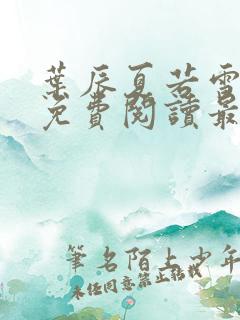 葉辰夏若雪
免費閱讀最
筆名陌上少年
未經同意禁止轉載